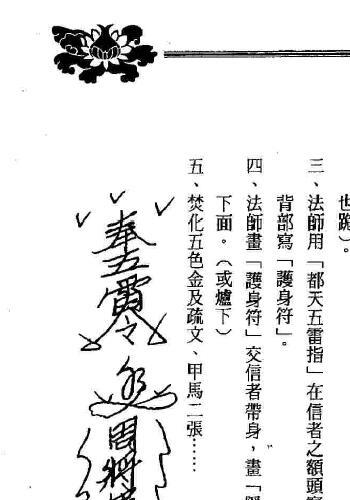 也跪）。
三、法師用「都天五雷指」在信者之額頭
背部寫「護身符」。
四、法師畫「護身符」交信者帶身，畫「
下面。（或爐下）
五、焚化五色金及疏文、甲馬二張……
奉五雷令
周將